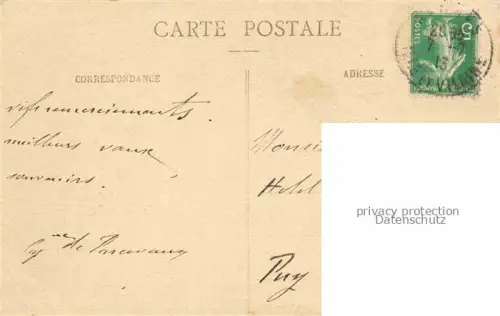 CARTE POSTALE
CORRESPONDANCE
ADRESSE
5
POSTES
vifs remerciements.
meilleurs vœux
souvenirs.
de
Monsi
Hotel
Puy
privacy protection
Datenschutz